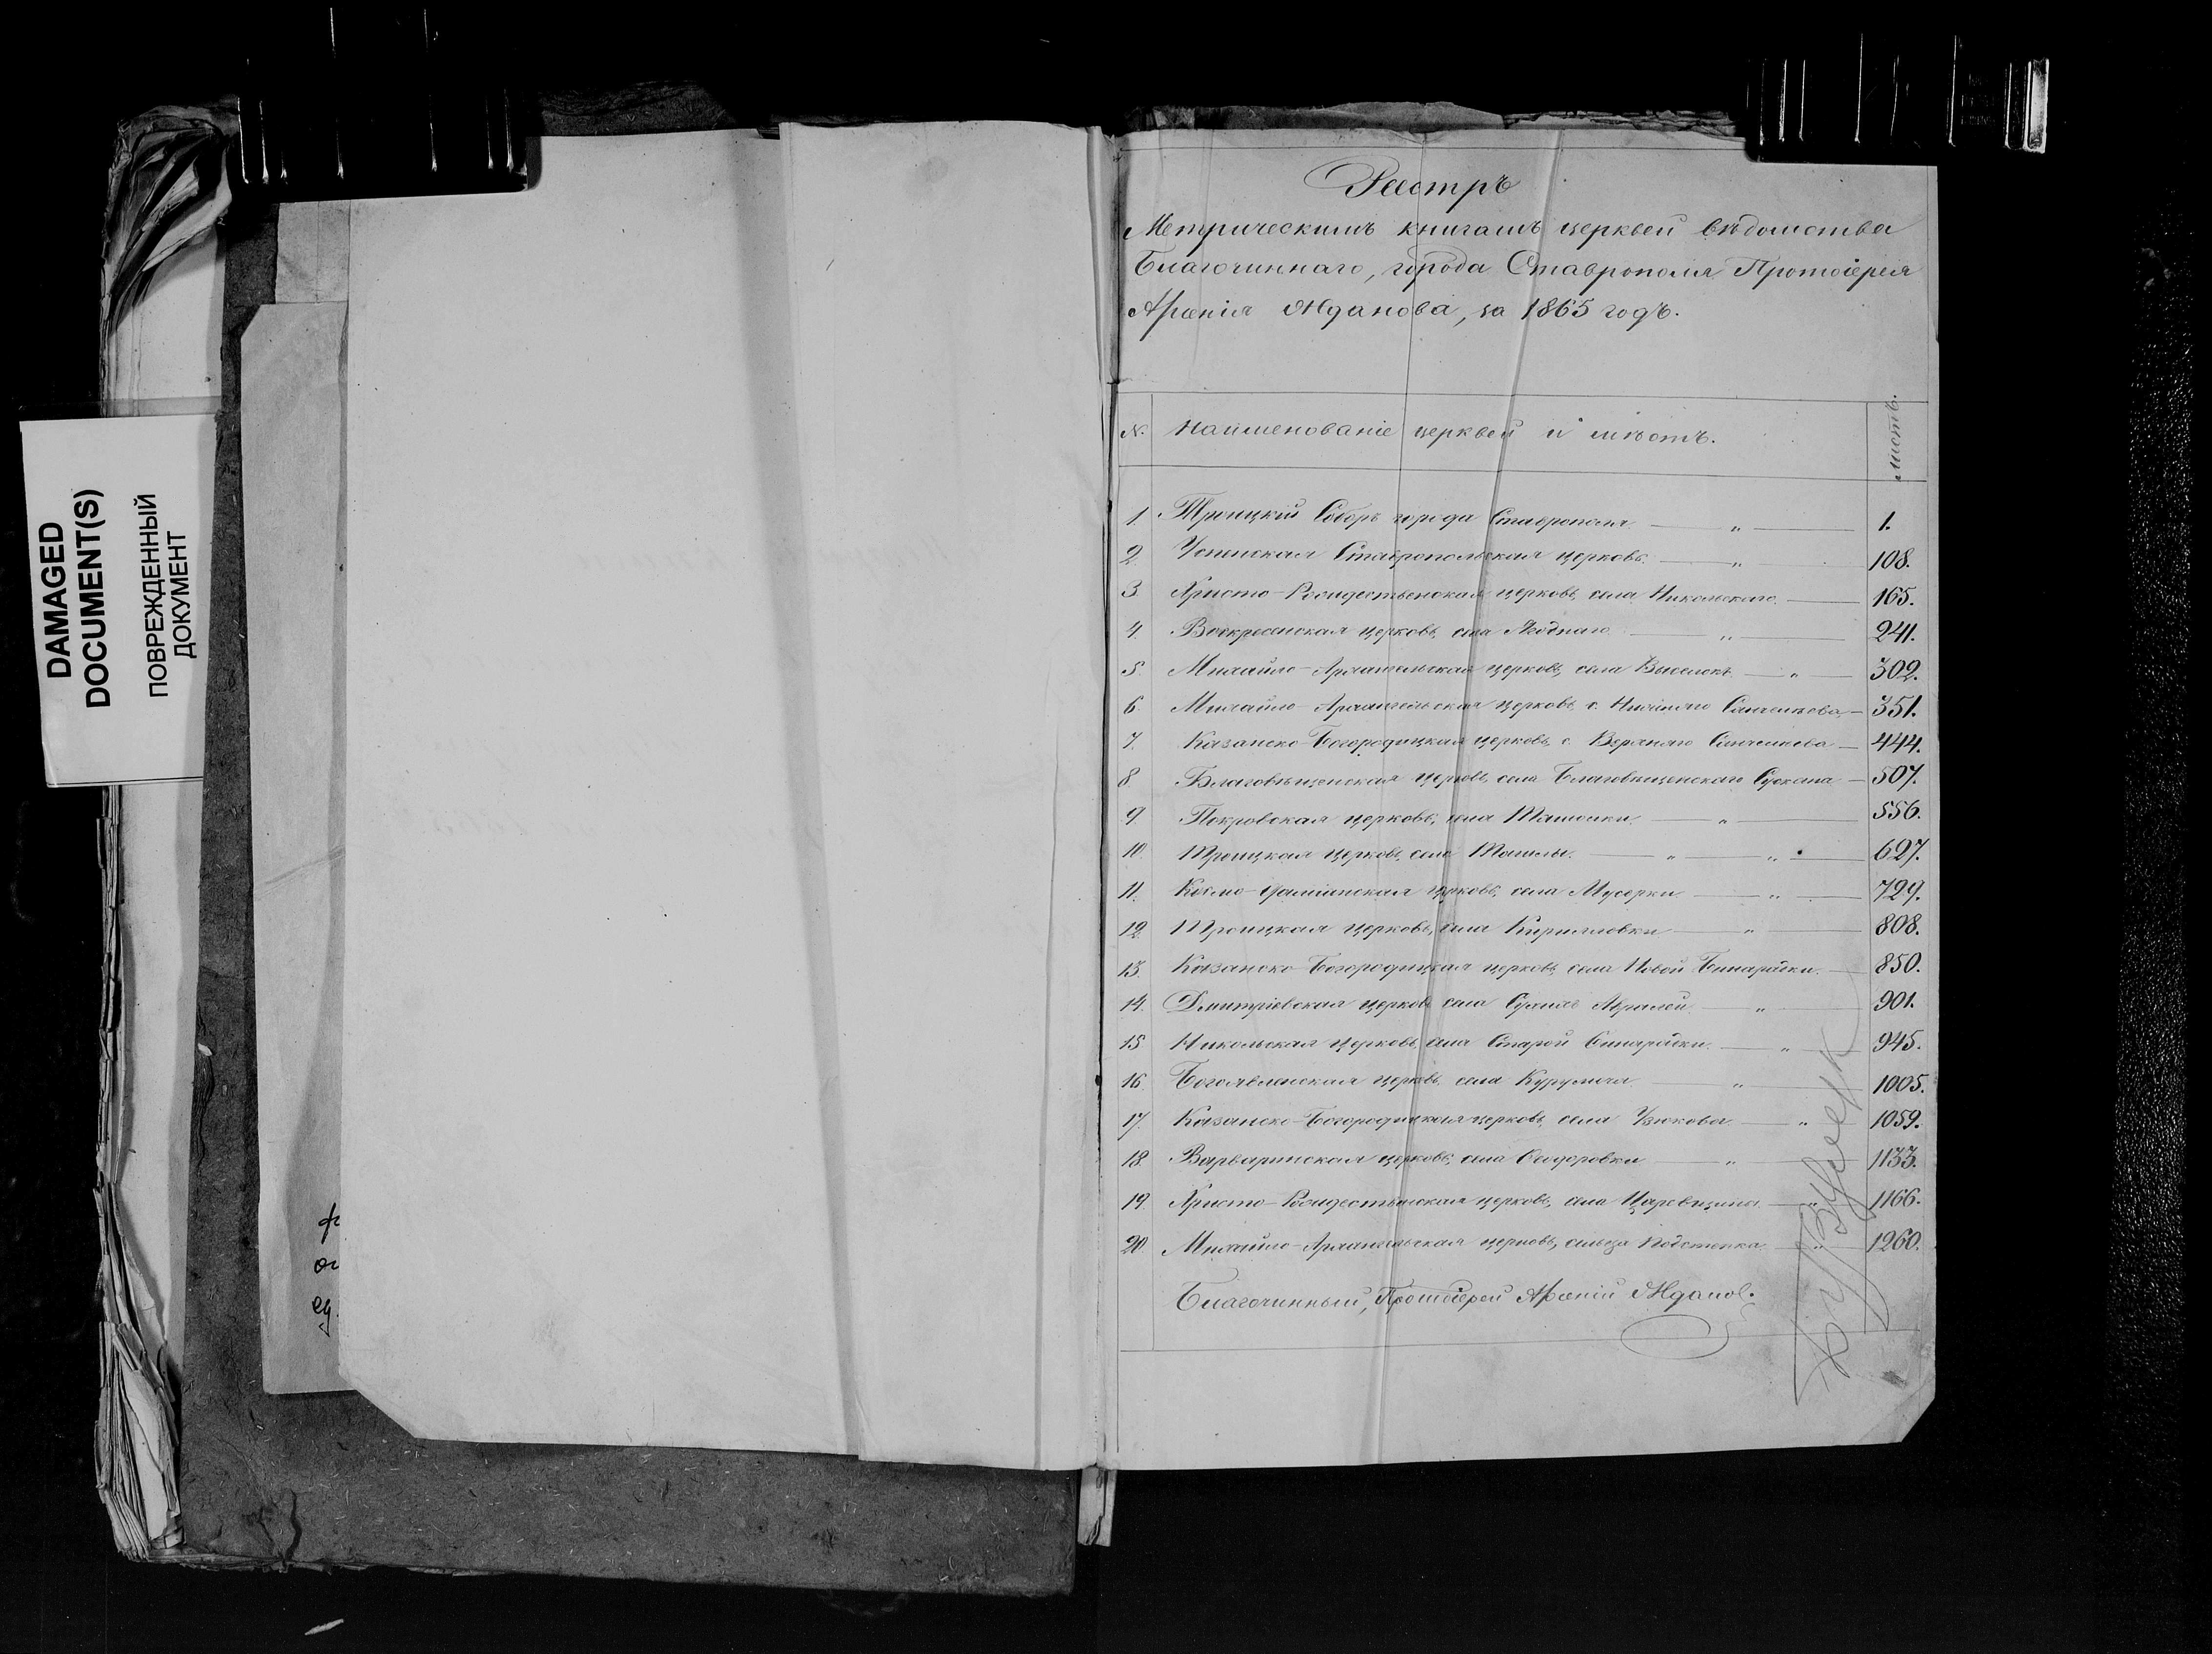 DAMAGED
DOCUMENT(S)
ПОВРЕЖДЕННЫЙ
ДОКУМЕНТ
Реестръ
Метрическимъ книгамъ церквей вѣдомства
Благочиннаго, города Ставрополя Протоіерея
Арсенія Жданова, за 1865 годъ.
№ Наименованіе церквей и мѣстъ. листъ.
1. Троицкій Соборъ города Ставрополя — „ — 1.
2. Успенская Ставропольская церковь. — „ 108.
3. Христо-Рождественская церковь, села Никольскаго. — 165.
4. Воскресенская церковь, села Ягоднаго. — „ — 241.
5. Михайло-Архангельская церковь, села Выселокъ — „ — 302.
6. Михайло-Архангельская церковь, с. Нижняго Санчелеева — 351.
7. Казанско-Богородицкая церковь, с. Верхняго Санчелеева — 444.
8. Благовѣщенская церковь, села Благовѣщенскаго Сускана — 507.
9. Покровская церковь, села Ташолки. — „ — 556.
10. Троицкая церковь, села — „ — „ — 627.
11. Космо-Даміанская церковь, села Мусорки — „ — 729.
12. Троицкая церковь, села Кирилловки — „ — 808.
13. Казанско-Богородицкая церковь, села Новой Бинарадки. — 850.
14. Димитріевская церковь села Сухихъ Авралей — „ — 901.
15. Никольская церковь, села Старой Бинарадки. — „ — 945.
16. Богоявленская церковь, села Курумоча — „ — 1005.
17. Казанско-Богородицкая церковь, села Узюкова — „ 1059.
18. Варваринская церковь, села Ѳедоровки — „ — 1133.
19. Христо-Рождественская церковь, села Царевщины — „ — 1166.
20. Михайло-Архангельская церковь, сельца Подстепка — „ — 1260.
Благочинный, Протоіерей Арсеній Ждановъ.